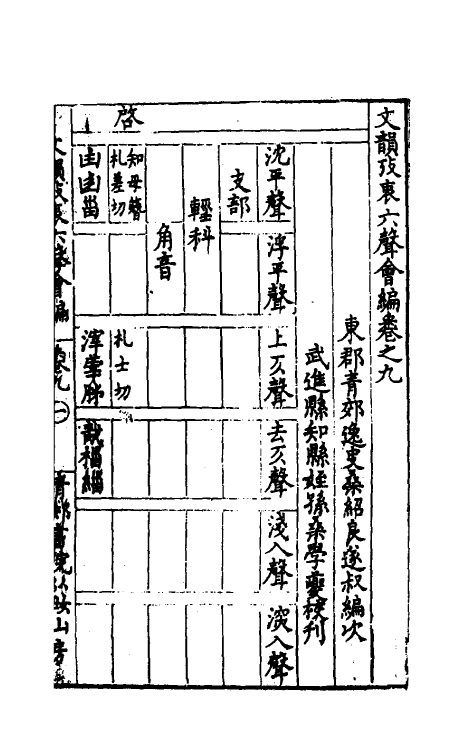 文韻攷衷六聲會編卷之九
東郡青郊逸叟桑紹良遂叔編次
武進縣知縣姪孫桑學夔校刊
沈平聲
浮平聲
上仄聲
去仄聲
淺入聲
深入聲
支部
輕科
角音
啓
知母簪
札差切
札士切
甾
滓
文韻攷衷六聲會編
卷九
一
青郊書院
山房